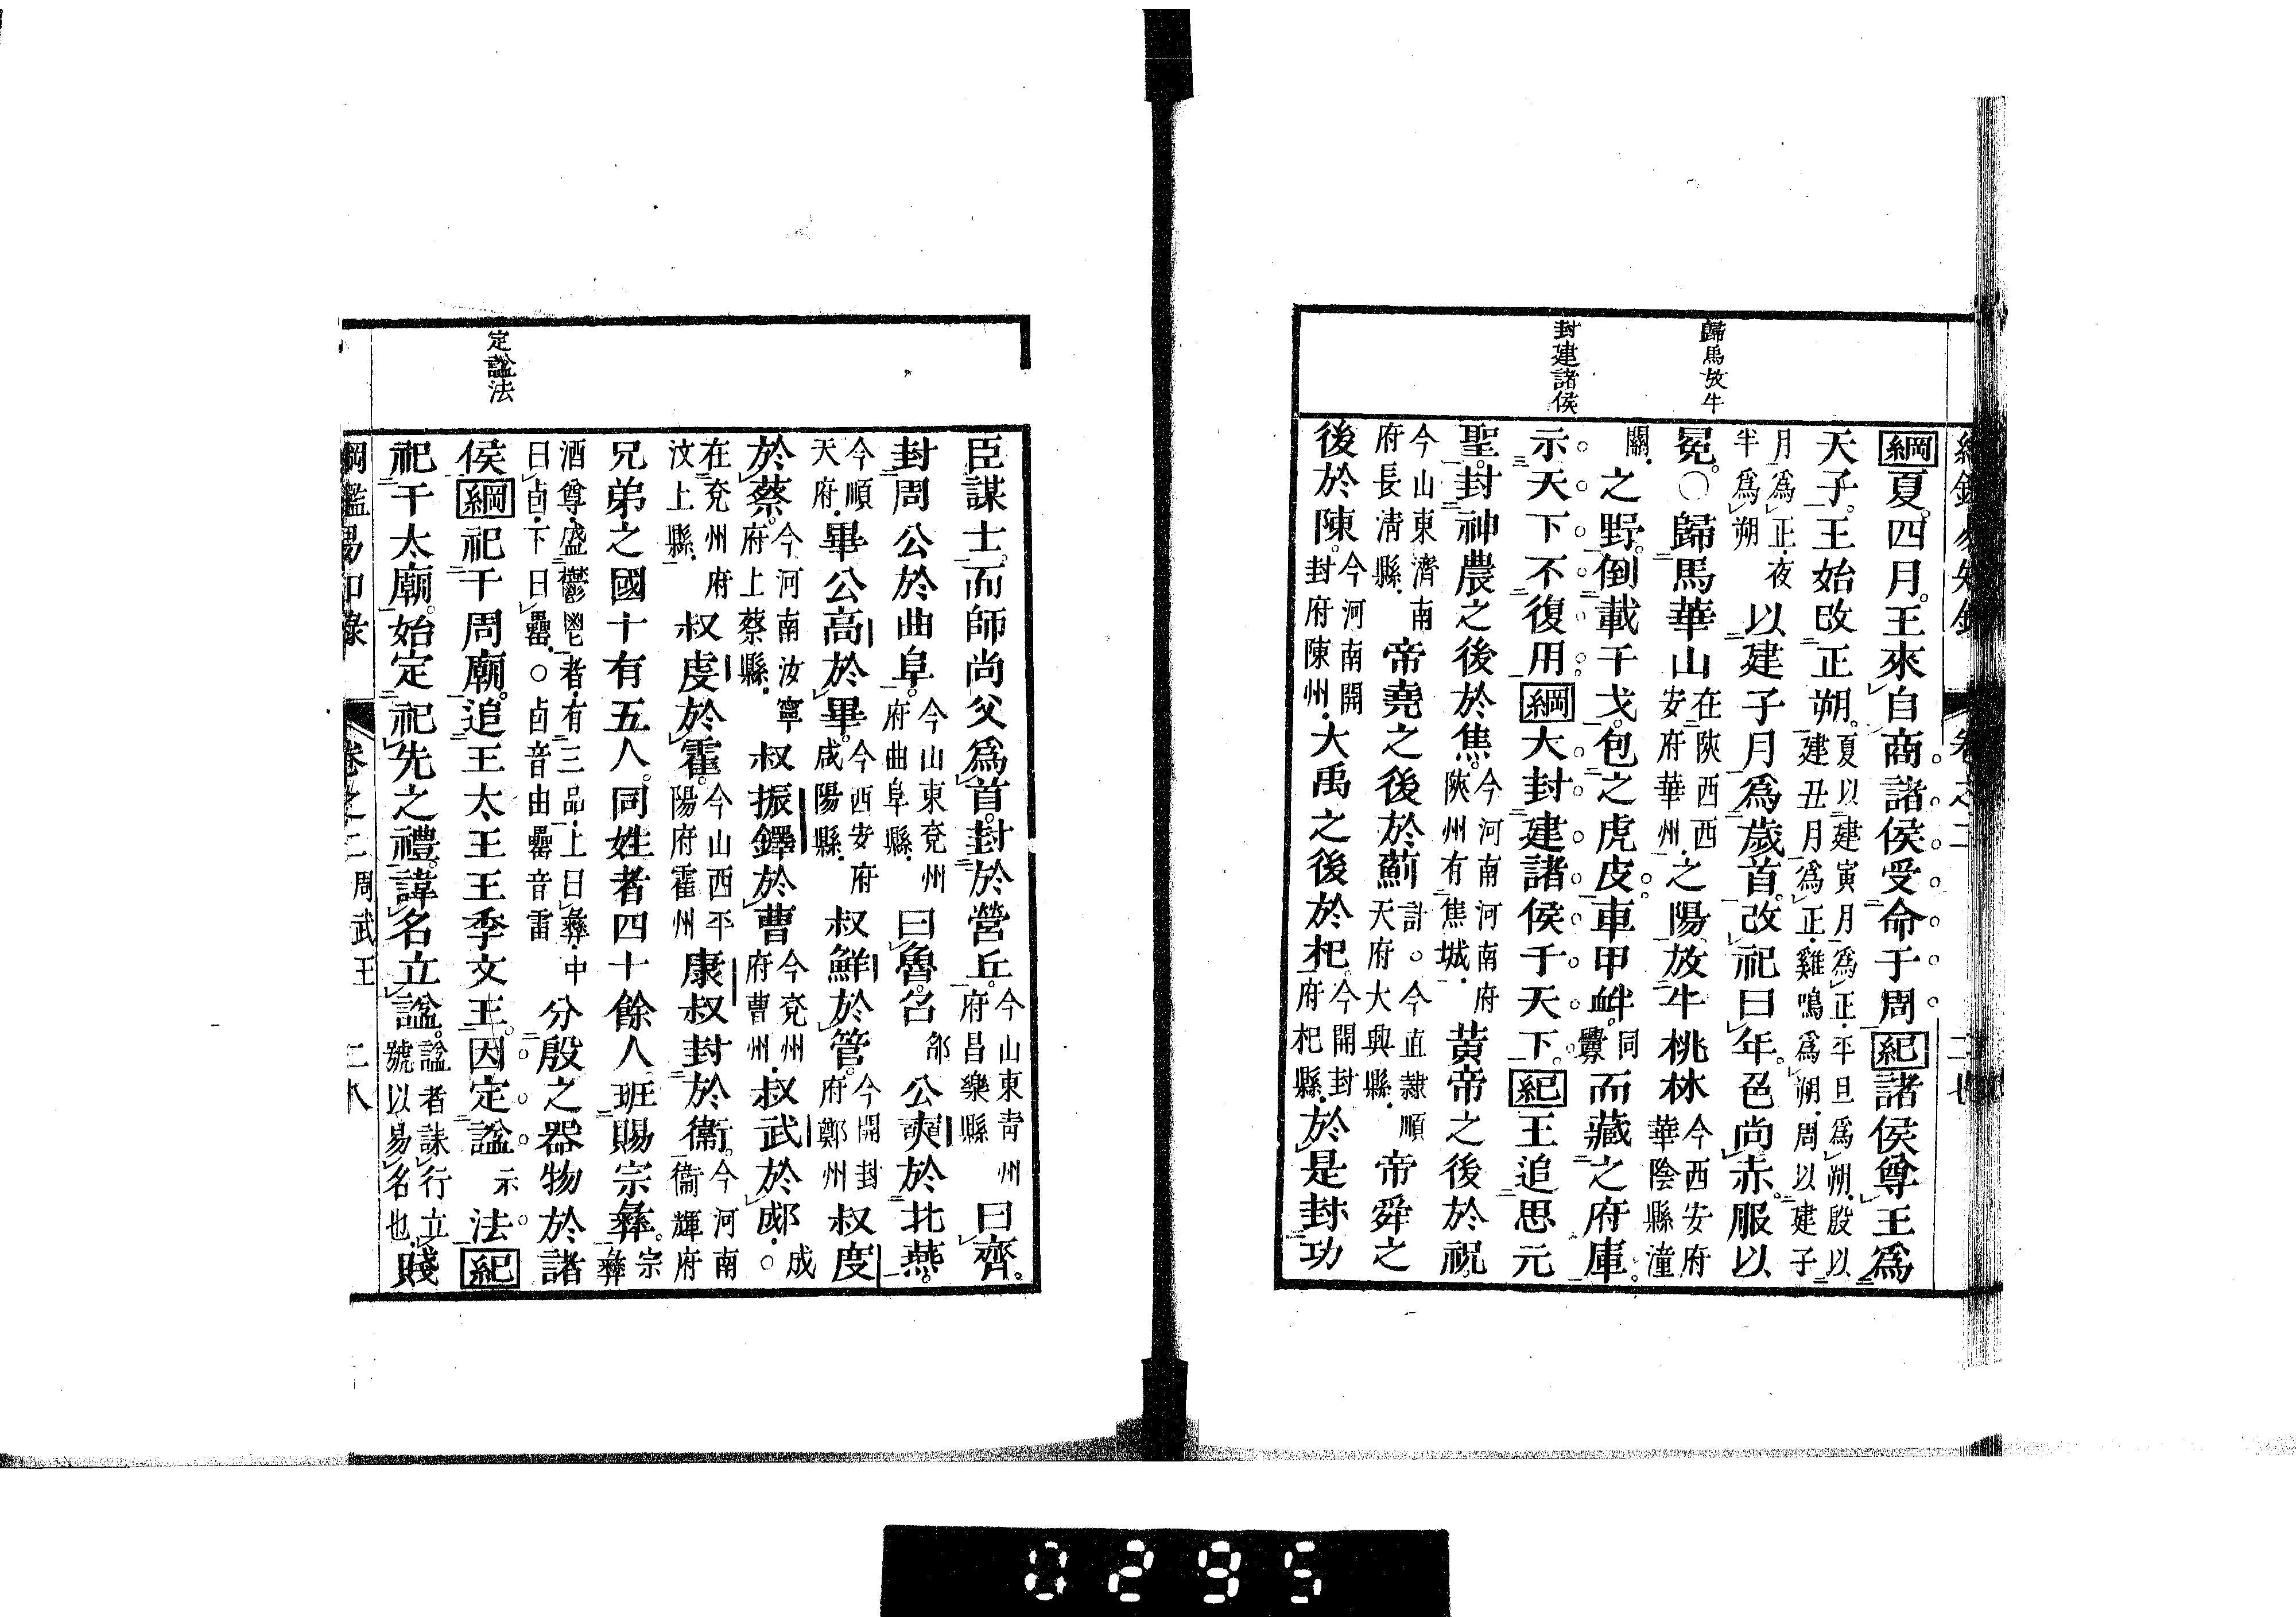 歸馬放牛
封建諸侯
綱夏。四月。王來自商諸侯受命于周紀諸侯尊王爲
天子。王始改正朔。夏以建寅月爲正。平旦爲朔。殷以建丑月爲正。雞鳴爲朔。周以建子
月爲正。夜半爲朔以建子月爲歲首。改祀曰年。色尚赤。服以
冕。〇歸馬華山在陝西西安府華州。之陽放牛桃林今西安府華陰縣潼
關。之野。倒載干戈。包之虎皮。車甲衅。同釁而藏之府庫。
示天下不復用綱大封建諸侯于天下。紀王追思元
聖。封神農之後於焦。今河南河南府陝州有焦城。黃帝之後於祝。
今山東濟南府長淸縣。帝堯之後於薊計。今直隷順天府大興縣。帝舜之
後於陳。今河南開封府陳州。大禹之後於杞。今開封府杞縣。於是封功
卷之二
定諡法
臣謀士。而師尚父爲首。封於營丘。今山東靑州府昌樂縣曰齊。
封周公於曲阜。今山東兗州府曲阜縣。曰魯。召邵公奭於北燕。
今順天府。畢公高於畢。今西安府咸陽縣。叔鮮於管。今開封府鄭州叔度
於蔡。今河南汝寧府上蔡縣。叔振鐸於曹今兗州府曹州。叔武於郕。成〇
在兗州府汶上縣。叔虔於霍。今山西平陽府霍州康叔封於衞。今河南衞輝府
兄弟之國十有五人。同姓者四十餘人班賜宗彝。宗彝
酒尊。盛鬱鬯者。有三品。上曰彝。中曰卣。下曰罍。〇卣音由罍音雷分殷之器物於諸
侯綱祀于周廟。追王太王王季文王。因定諡示法。紀
祀于太廟。始定祀先之禮。諱名立諡。諡者誄行立號以易名也。賤
綱鑑易知錄 卷之二周武王 二八
0295